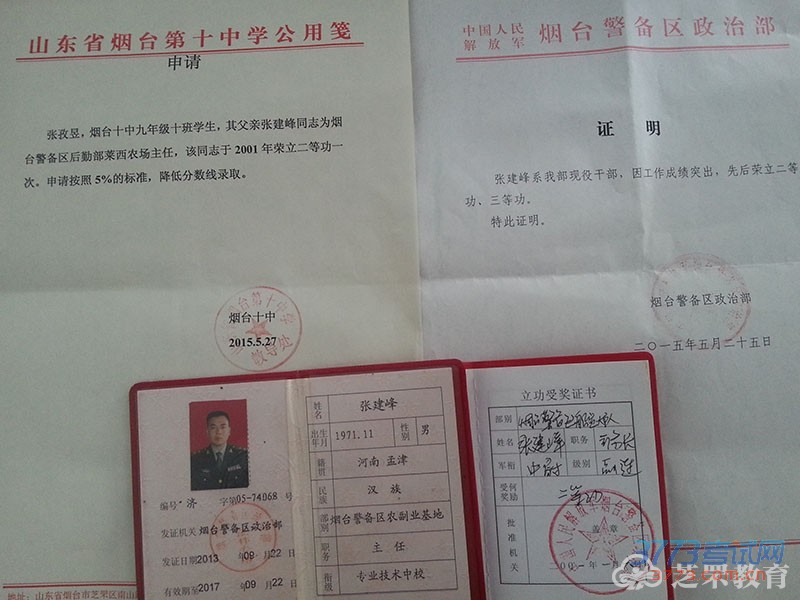 山东省烟台第十中学公用笺
申请
张孜昱，烟台十中九年级十班学生，其父亲张建峰同志为烟
台警备区后勤部莱西农场主任，该同志于 2001 年荣立二等功一
次。申请按照 5%的标准，降低分数线录取。
烟台十中
2015.5.27
教导处
中国人民
解放军
烟台警备区政治部
证 明
张建峰系我部现役干部，因工作成绩突出，先后荣立二等
功、三等功。
特此证明。
烟台警备区政治部
二〇一五年五月二十五日
编号 济 字第05-74068 号
发证机关 烟台警备区政治部
发证日期 2013 年 09 月 22 日
有效期至 2017 年 09 月 22 日
姓名 张建峰
出生年月 1971.11 性别 男
籍贯 河南 孟津
民族 汉 族
部别 烟台警备区农副业基地
职务 主 任
衔级 专业技术中校
立功受奖证书
部别
姓名 张建峰 职务
军衔 中尉 级别 副连
受何奖励 二等功
批准机关
盖 章
地址：山东省烟台市芝罘区南山
3773考试网
芝罘教育